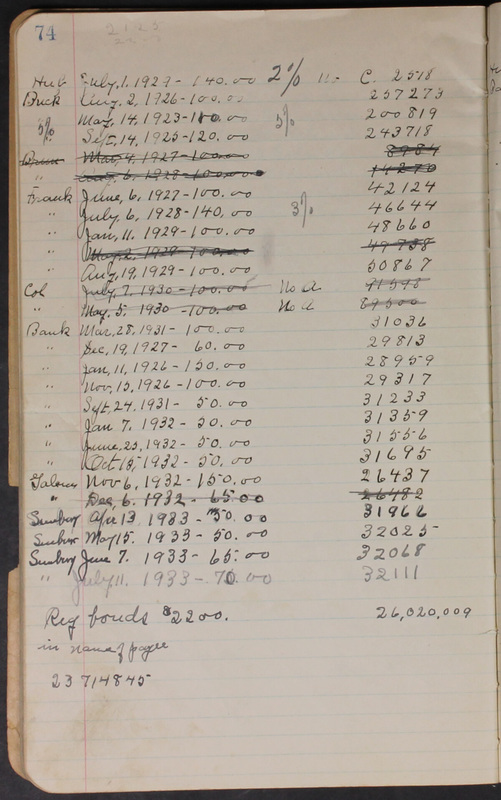 74
2125
Hub July, 1. 1929 - 140.00 2% C. 2518
Buck Aug. 2, 1926 - 100.00 257273
May, 14. 1923 - 100.00 3% 200819
5% Sept, 14, 1925 - 120.00 243718
May, 4. 1927 - 100.00 8984
" Aug. 6. 1928 - 100.00 14270
Frank June, 6, 1927 - 100.00 42124
" July, 6. 1928 - 140,00 3% 46644
" Jan, 11. 1929 - 100.00 48660
" May, 2. 1929 - 100.00 49738
" Aug, 19, 1929 - 100.00 50867
Col July, 7. 1930 - 100.00 No A
" May, 5. 1930 - 100.00 No A 89500
Bank Mar, 28, 1931 - 100.00 31036
" Dec, 19, 1927 - 60.00 29813
" Jan, 11, 1926 - 150.00 28959
" Nov, 15, 1926 - 100.00 29317
" Sept. 24. 1931 - 50.00 31233
" Jan 7. 1932 - 50.00 31359
" June. 23, 1932 - 50.00 31556
" Oct 15, 1932 - 50.00 31695
Nov 6, 1932 - 150.00 26437
" Dec, 6. 1932 - 65.00 26482
Sunbury Apr 13. 1933 - 50.00 31966
Sunbur May 15. 1933 - 50.00 32025
Sunbury June 7. 1933 - 65.00 32068
" July 11. 1933 - 70.00 32111
Reg bonds $2200. 26,020,009
in name of payee
23714845